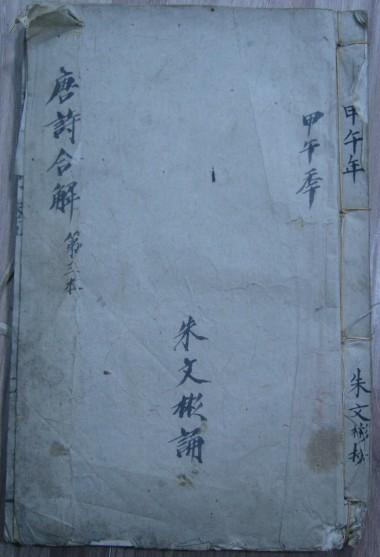 甲午年
朱文彬
甲午季
朱文彬誦
唐詩合解
第三本